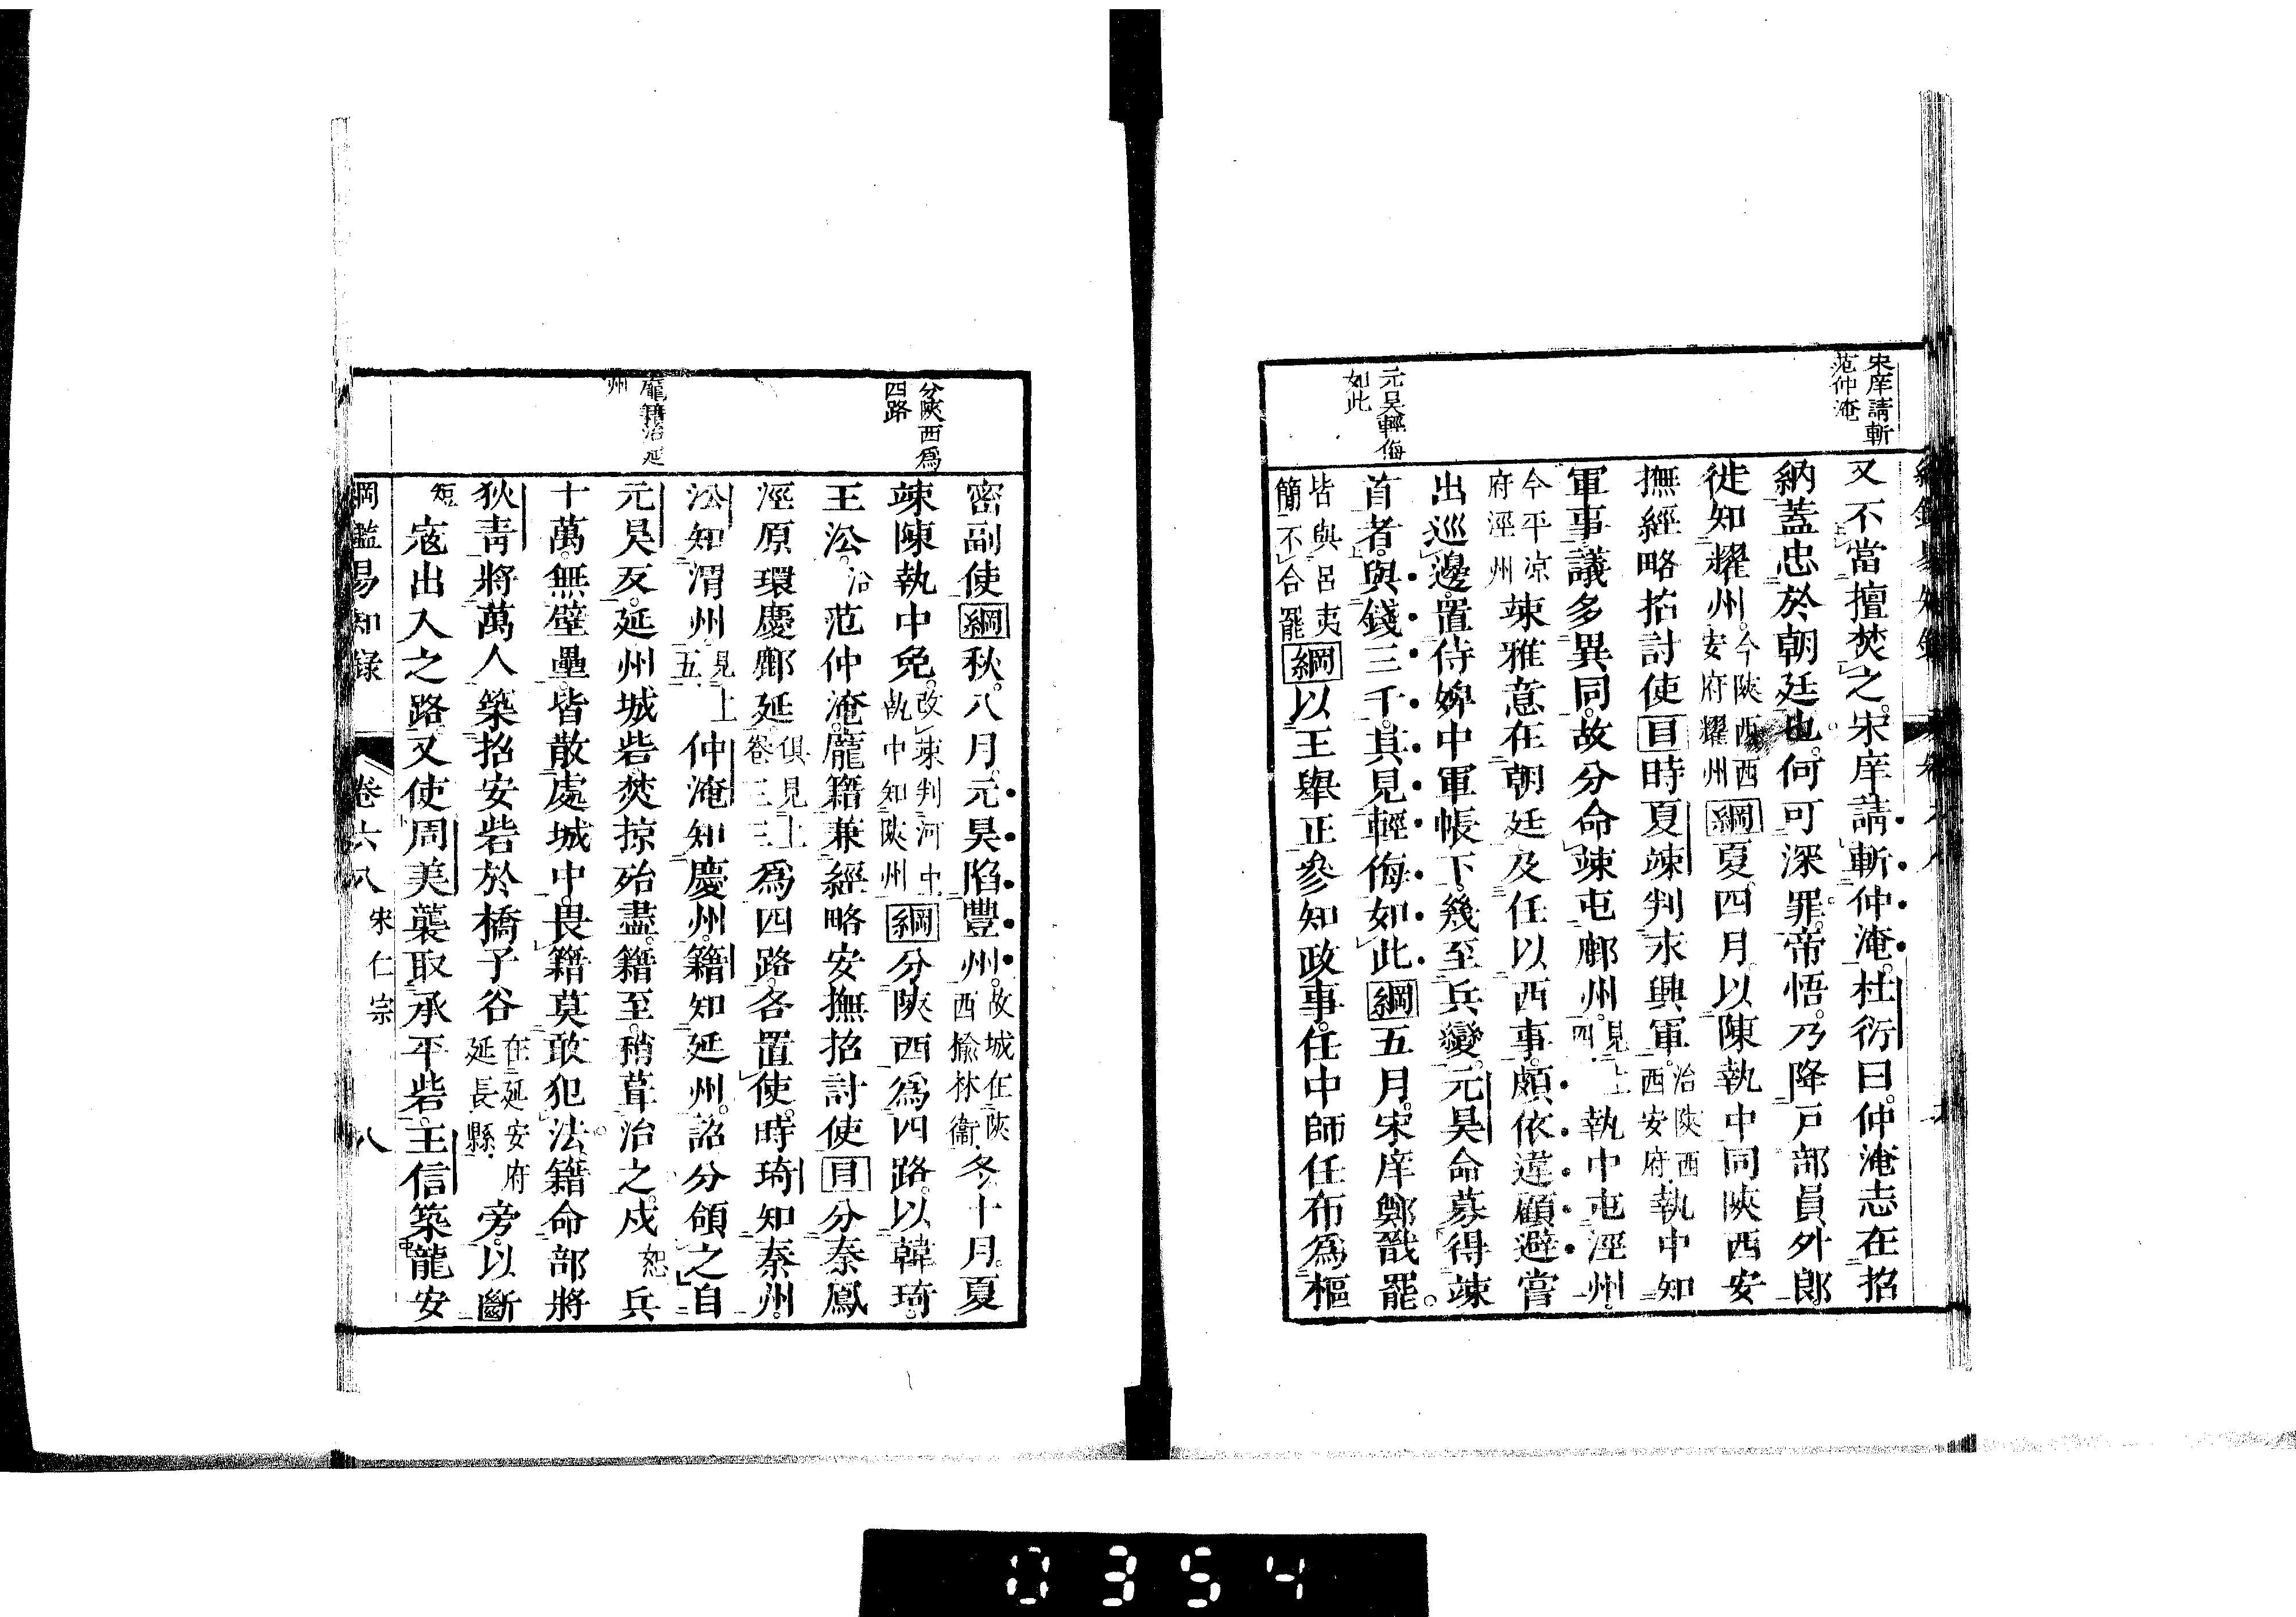 宋庠請斬
范仲淹
又不當擅焚之宋庠請斬仲淹杜衍曰仲淹志在招
納蓋忠於朝廷也何可深罪帝悟乃降戶部員外郎
徙知耀州今陝西西安府耀州綱夏四月以陳執中同陝西安
撫經略招討使目時夏竦判永興軍治陝西西安府執中知
軍事議多異同故分命竦屯鄜州見上四執中屯涇州
今平凉府涇州竦雅意在朝廷及任以西事頗依違顧避嘗
出巡邊置侍婢中軍帳下幾至兵變元昊命募得竦
元昊輕侮
如此
首者與錢三千其見輕侮如此綱五月宋庠鄭戩罷
皆與呂夷簡不合罷綱以王舉正參知政事任中師任布爲樞
密副使綱秋八月元昊陷豐州故城在陝西榆林衞冬十月夏
分陝西爲
四路
竦陳執中免改竦判河中執中知陝州綱分陝西爲四路以韓琦
王㳂治范仲淹龐籍兼經略安撫招討使目分秦鳳
涇原環慶鄜延俱見上卷三三爲四路各置使時琦知秦州
㳂知渭州見上五仲淹知慶州籍知延州詔分領之自
龐籍治延
州
元昊反延州城砦焚掠殆盡籍至稍葺治之戍恕兵
十萬無壁壘皆散處城中畏籍莫敢犯法籍命部將
狄青將萬人築招安砦於橋子谷在延安府延長縣旁以斷
短寇出入之路又使周美襲取承平砦王信築龍安
綱鑑易知錄 卷六八 宋仁宗 八
0354